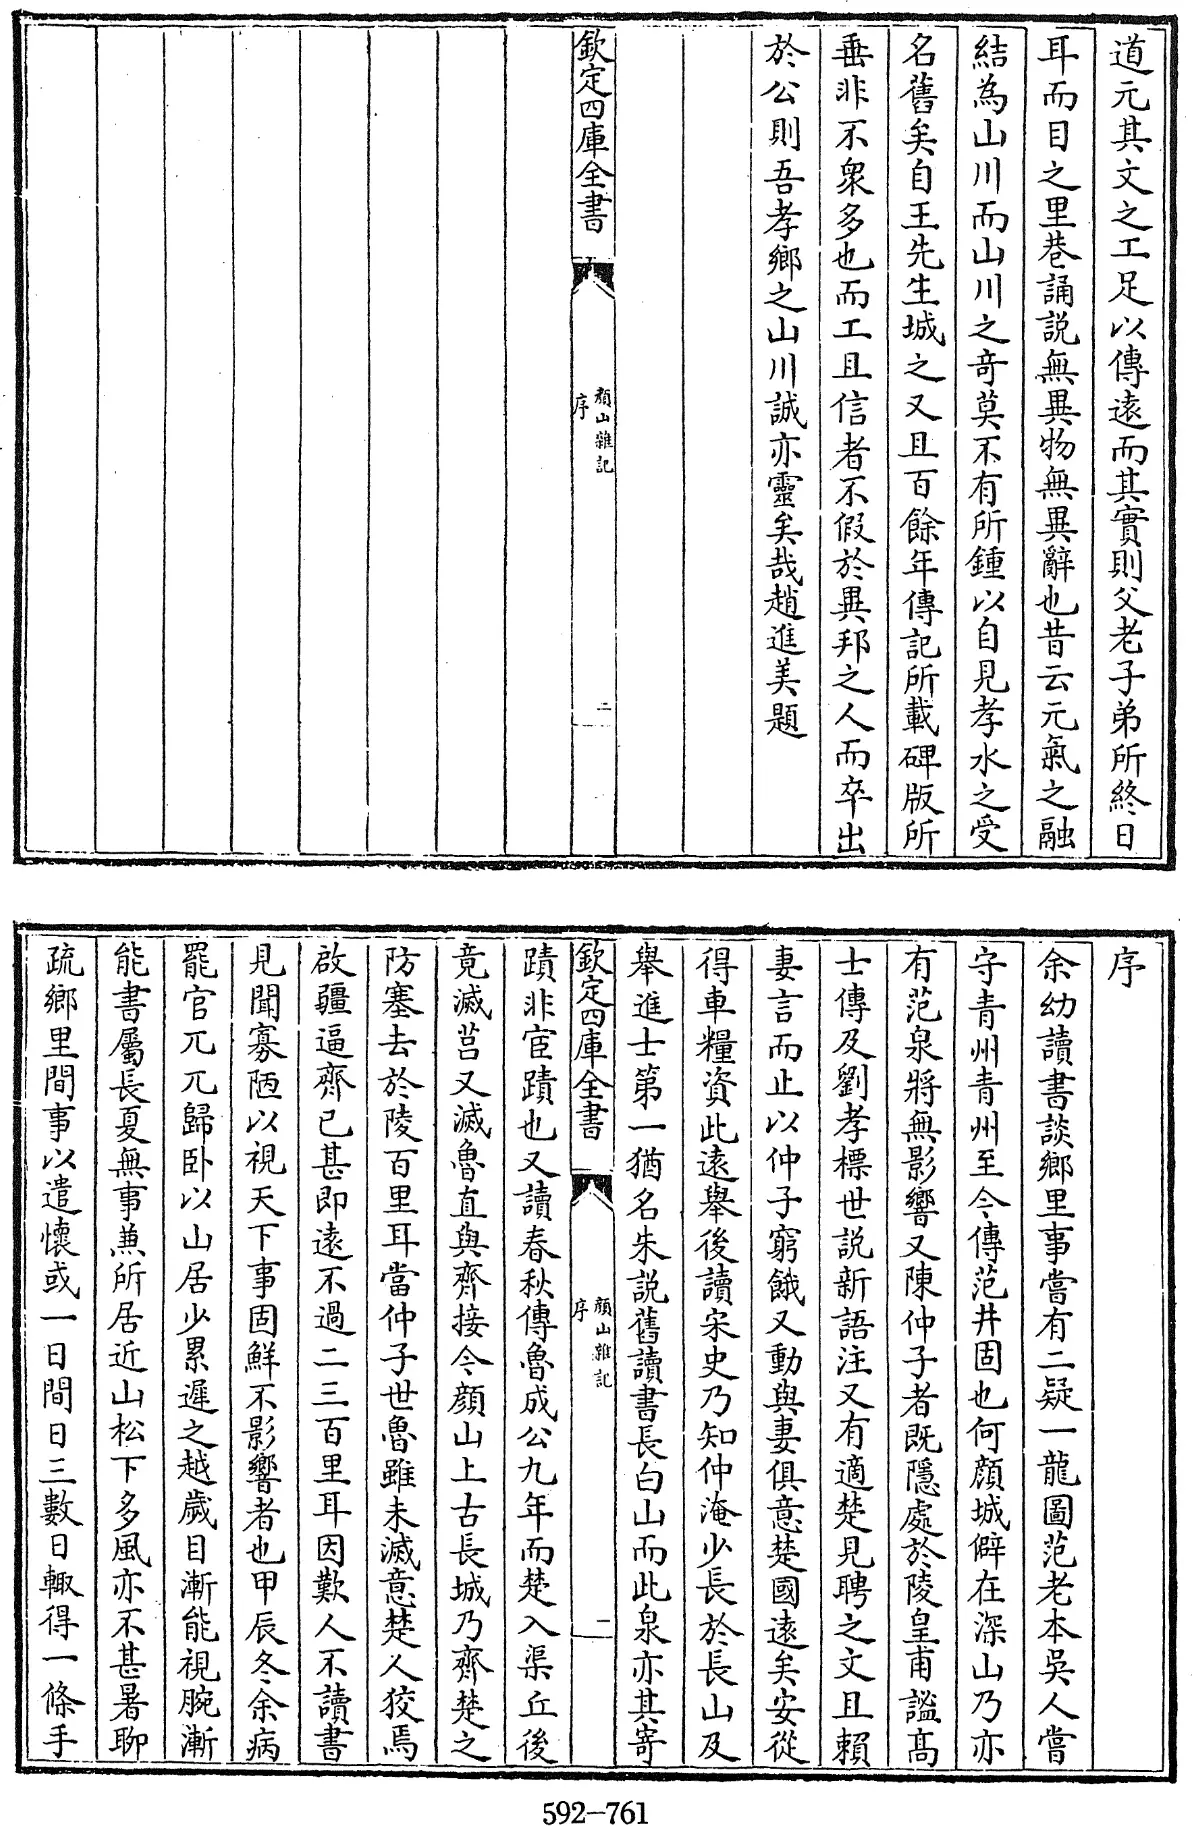 道元其文之工足以傳遠而其實則父老子弟所終日
耳而目之里巷誦説無異物無異辭也昔云元氣之融
結為山川而山川之竒莫不有所鍾以自見孝水之受
名舊矣自王先生城之又且百餘年傳記所載碑版所
垂非不衆多也而工且信者不假於異邦之人而卒出
於公則吾孝鄉之山川誠亦靈矣哉趙進美題
欽定四庫全書
顔山雜記
序
二
序
余幼讀書談鄉里事嘗有二疑一龍圖范老本吳人嘗
守青州青州至今傳范井固也何顔城僻在深山乃亦
有范泉將無影響又陳仲子者既隱處於陵皇甫謐髙
士傳及劉孝標世説新語注又有適楚見聘之文且賴
妻言而止以仲子窮餓又動與妻俱意楚國遠矣安從
得車糧資此遠舉後讀宋史乃知仲淹少長於長山及
舉進士第一猶名朱説舊讀書長白山而此泉亦其寄
欽定四庫全書
顔山雜記
序
一
蹟非宦蹟也又讀春秋傳魯成公九年而楚入渠丘後
竟滅莒又滅魯直與齊接今顔山上古長城乃齊楚之
防塞去於陵百里耳當仲子世魯雖未滅意楚人狡焉
啟疆逼齊已甚即遠不過二三百里耳因歎人不讀書
見聞寡陋以視天下事固鮮不影響者也甲辰冬余病
罷官兀兀歸卧以山居少累遲之越歲目漸能視腕漸
能書屬長夏無事兼所居近山松下多風亦不甚暑聊
疏鄉里間事以遣懷或一日間日三數日輙得一條手
592-761